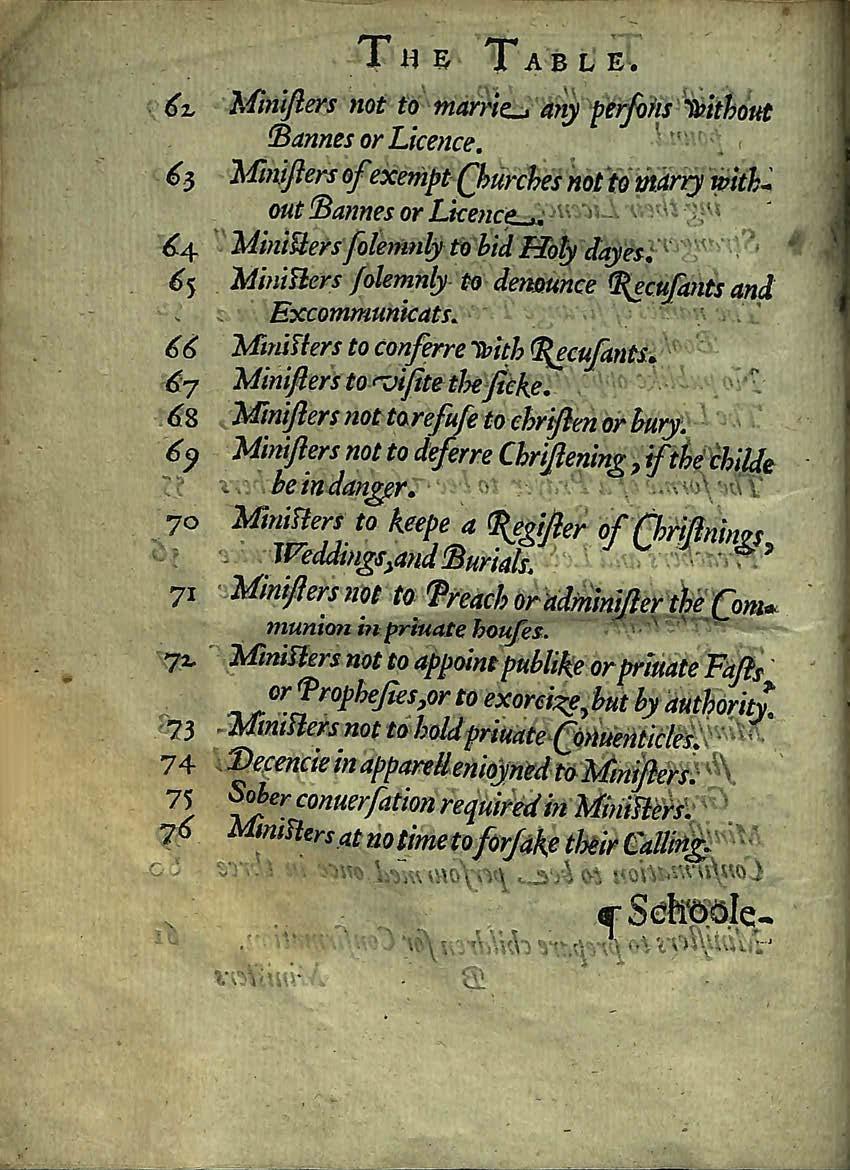 THE TABLE.
62 Miniſters not to marrie any perſons without
Bannes or Licence.
63 Miniſters of exempt Churches not to marry with-
out Bannes or Licence.
64 Miniſters ſolemnly to bid Holy dayes.
65 Miniſters ſolemnly to denounce Recuſants and
Excommunicats.
66 Miniſters to conferre with Recuſants.
67 Miniſters to viſite the ſicke.
68 Miniſters not to refuſe to chriſten or bury.
69 Miniſters not to deferre Chriſtening, if the childe
be in danger.
70 Miniſters to keepe a Regiſter of Chriſtnings,
Weddings, and Burials.
71 Miniſters not to Preach or adminiſter the Com-
munion in priuate houſes.
72 Miniſters not to appoint publike or priuate Faſts,
or Propheſies, or to exorcize, but by authority.
73 Miniſters not to hold priuate Conuenticles.
74 Decencie in apparell enioyned to Miniſters.
75 Sober conuerſation required in Miniſters.
76 Miniſters at no time to forſake their Calling.
¶ Schoole-